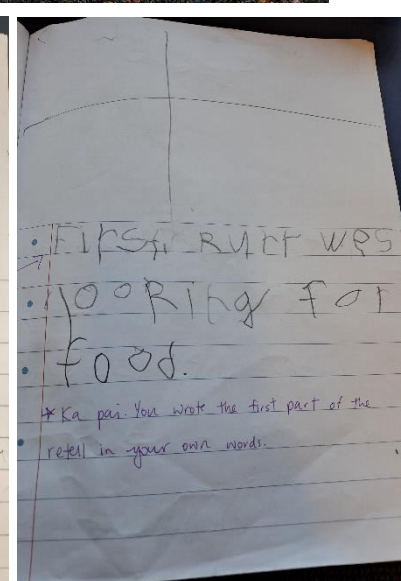 First, Rurr wes
looRing for
food.
* Ka pai. You wrote the first part of the
retell in your own words.